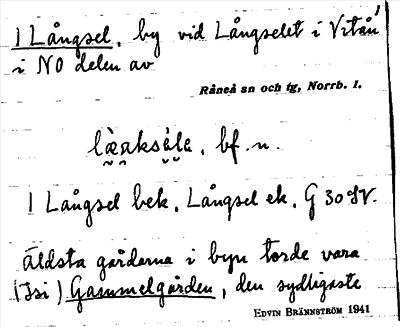 1 Långsel, by vid Långselet i Vitån
i NO delen av
Råneå sn och tg, Norrb. l.
bf. n.
1 Långsel bek. Långsel ek. G 30 SV.
Äldsta gårdarna i byn torde vara
(Isi) Gammelgården, den sydligaste
EDVIN BRÄNNSTRÖM 1941